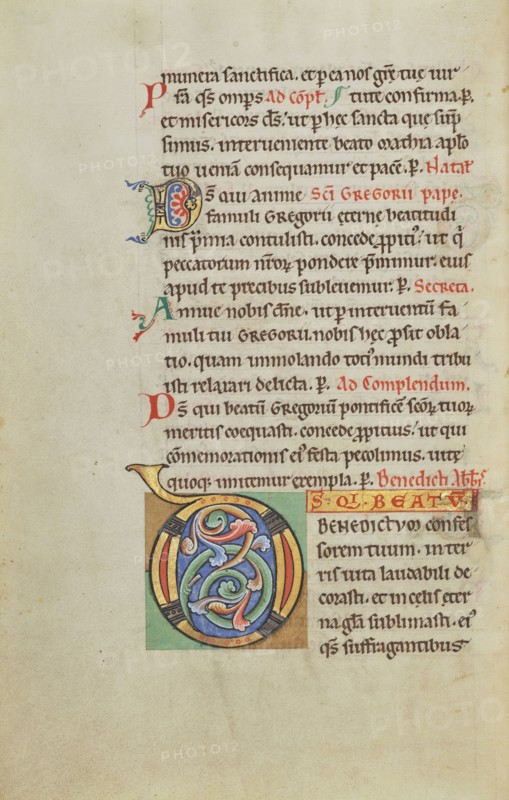 munera sanctifica. et p ea nos grẹ tuẹ vir
P sa qs omps Ad cōpl. I tute confirma. P.
et misericors ds. ut p hẹc sancta quẹ sūp
simus. interveniente beato mathia aplo
tuo veniā consequamur et pacē. P. Natał
D s̄ qui animẹ Sc̄i Gregorii papẹ.
famuli Gregorii eternẹ beatitudi
nis p̄mia contulisti. concede ꝓpiti᾽ ut q̇
peccatorum nr̄oꝝ pondere p̄mimur. eius
apud te precibus sublevemur. P. Secreta.
Annue nobis dn̄e. ut p interventū fa
muli tui Gregorii. nobis hẹc ꝓsit obla
tio. quam immolando toti᾽ mundi tribu
isti relaxari delicta. P. Ad Complendum.
D s̄ qui beatū Gregoriū pontificē sc̄oꝝ tuoꝝ
meritis coequasti. concede ꝓpitius. ut qui
cōmemorationis ei᾽ festa pecolimus. vitẹ
quoqꝫ imitemur exempla. P. Benedicti Abb̄is
D S. QI. BEATV̄
BENEDICTVM confes
sorem tuum. inter
ris vita laudabili de
corasti. et in cẹlis eter
na gl̄a sublimasti. ei᾽
qs suffragantibus
PHOTO12